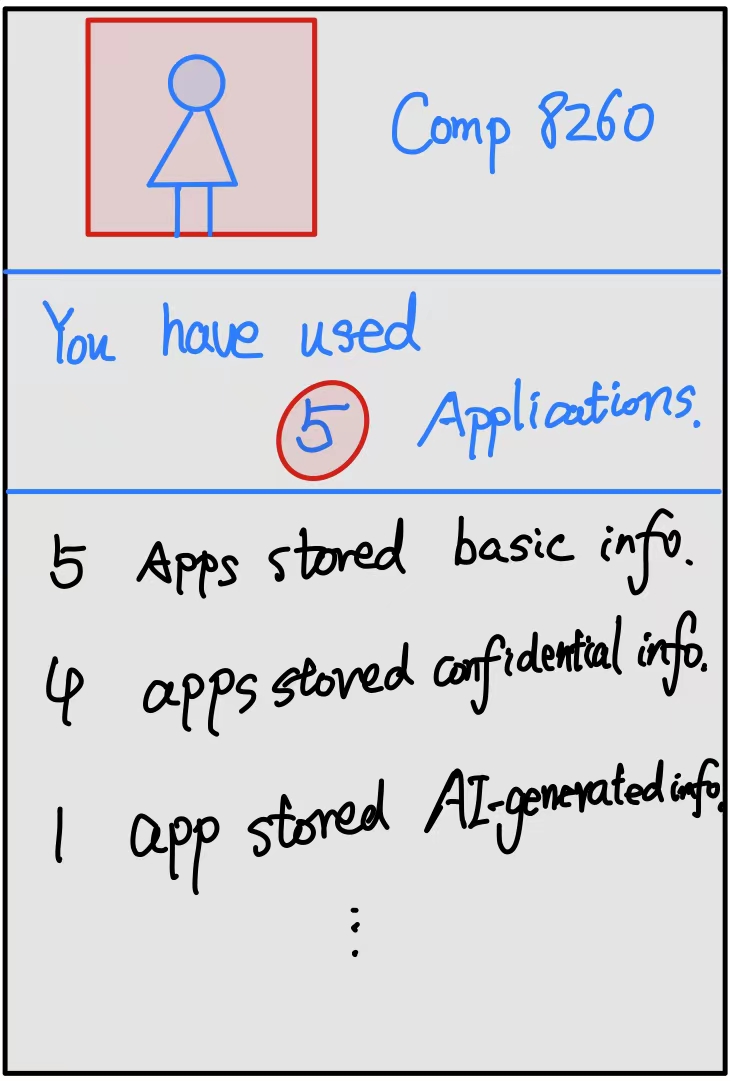 Comp 8260
You have used
5 Applications.
5 Apps stored basic info.
4 apps stored confidential info.
1 app stored AI-generated info.
⋮